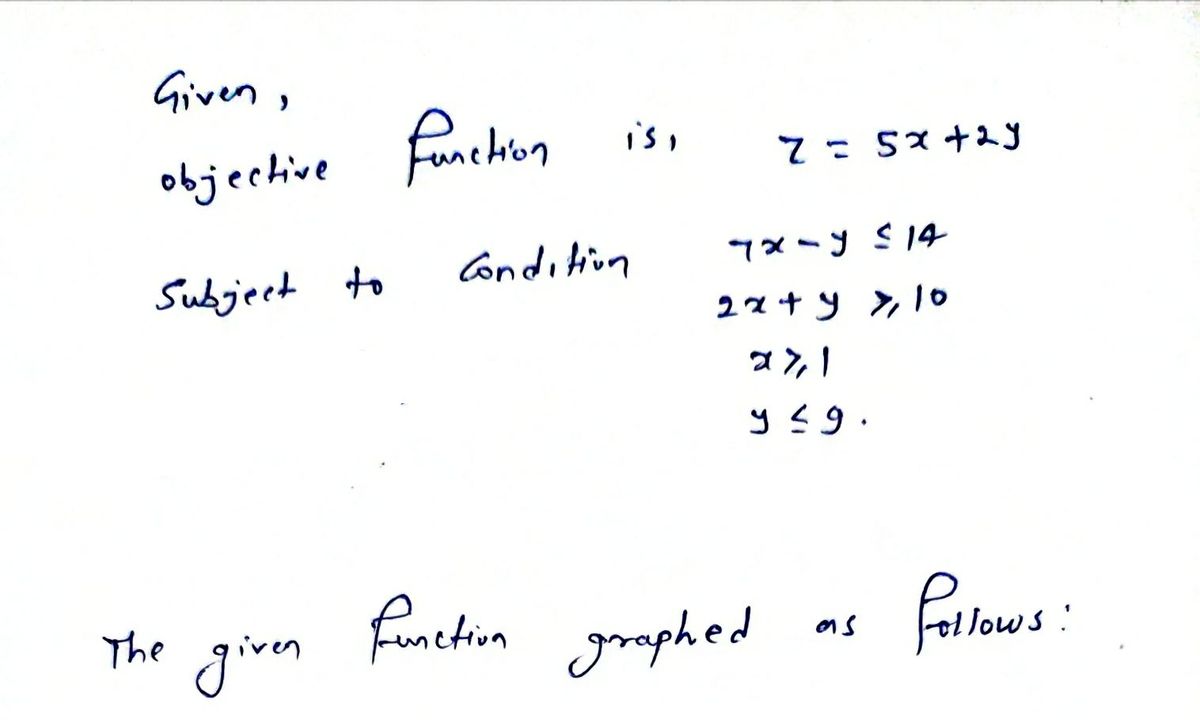 Given,
objective function is, z = 5x + 2y
Subject to condition 7x - y ≤ 14
2x + y ≥ 10
x ≥ 1
y ≤ 9.
The given function graphed as follows: